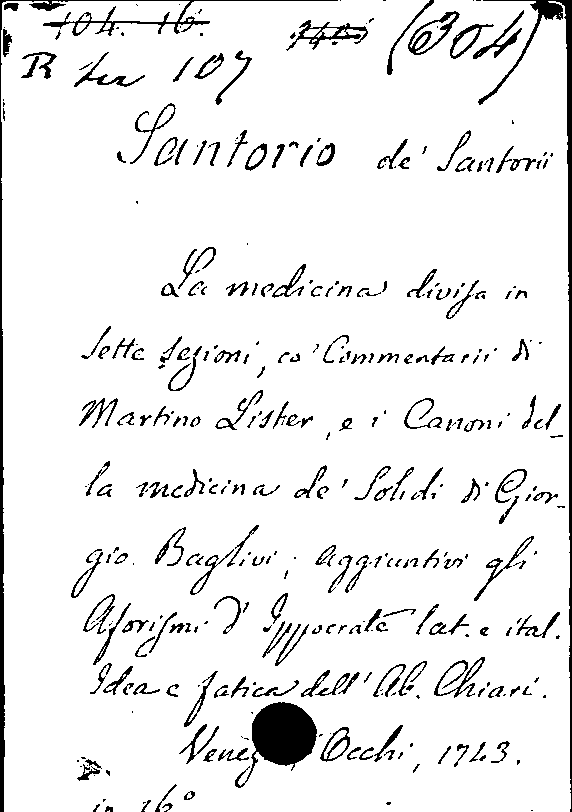 104. 16. (304)
R 107
Santorio de' Santorii
La medicina divisa in
sette sezioni, co' Commentarii di
Martino Lister, e i Canoni del-
la medicina de' Solidi di Gior-
gio Baglivi; aggiuntivi gli
Aforismi d'Ippocrate lat. e ital.
Idea e fatica dell'Ab. Chiari.
Occhi, 1743.
in 16°